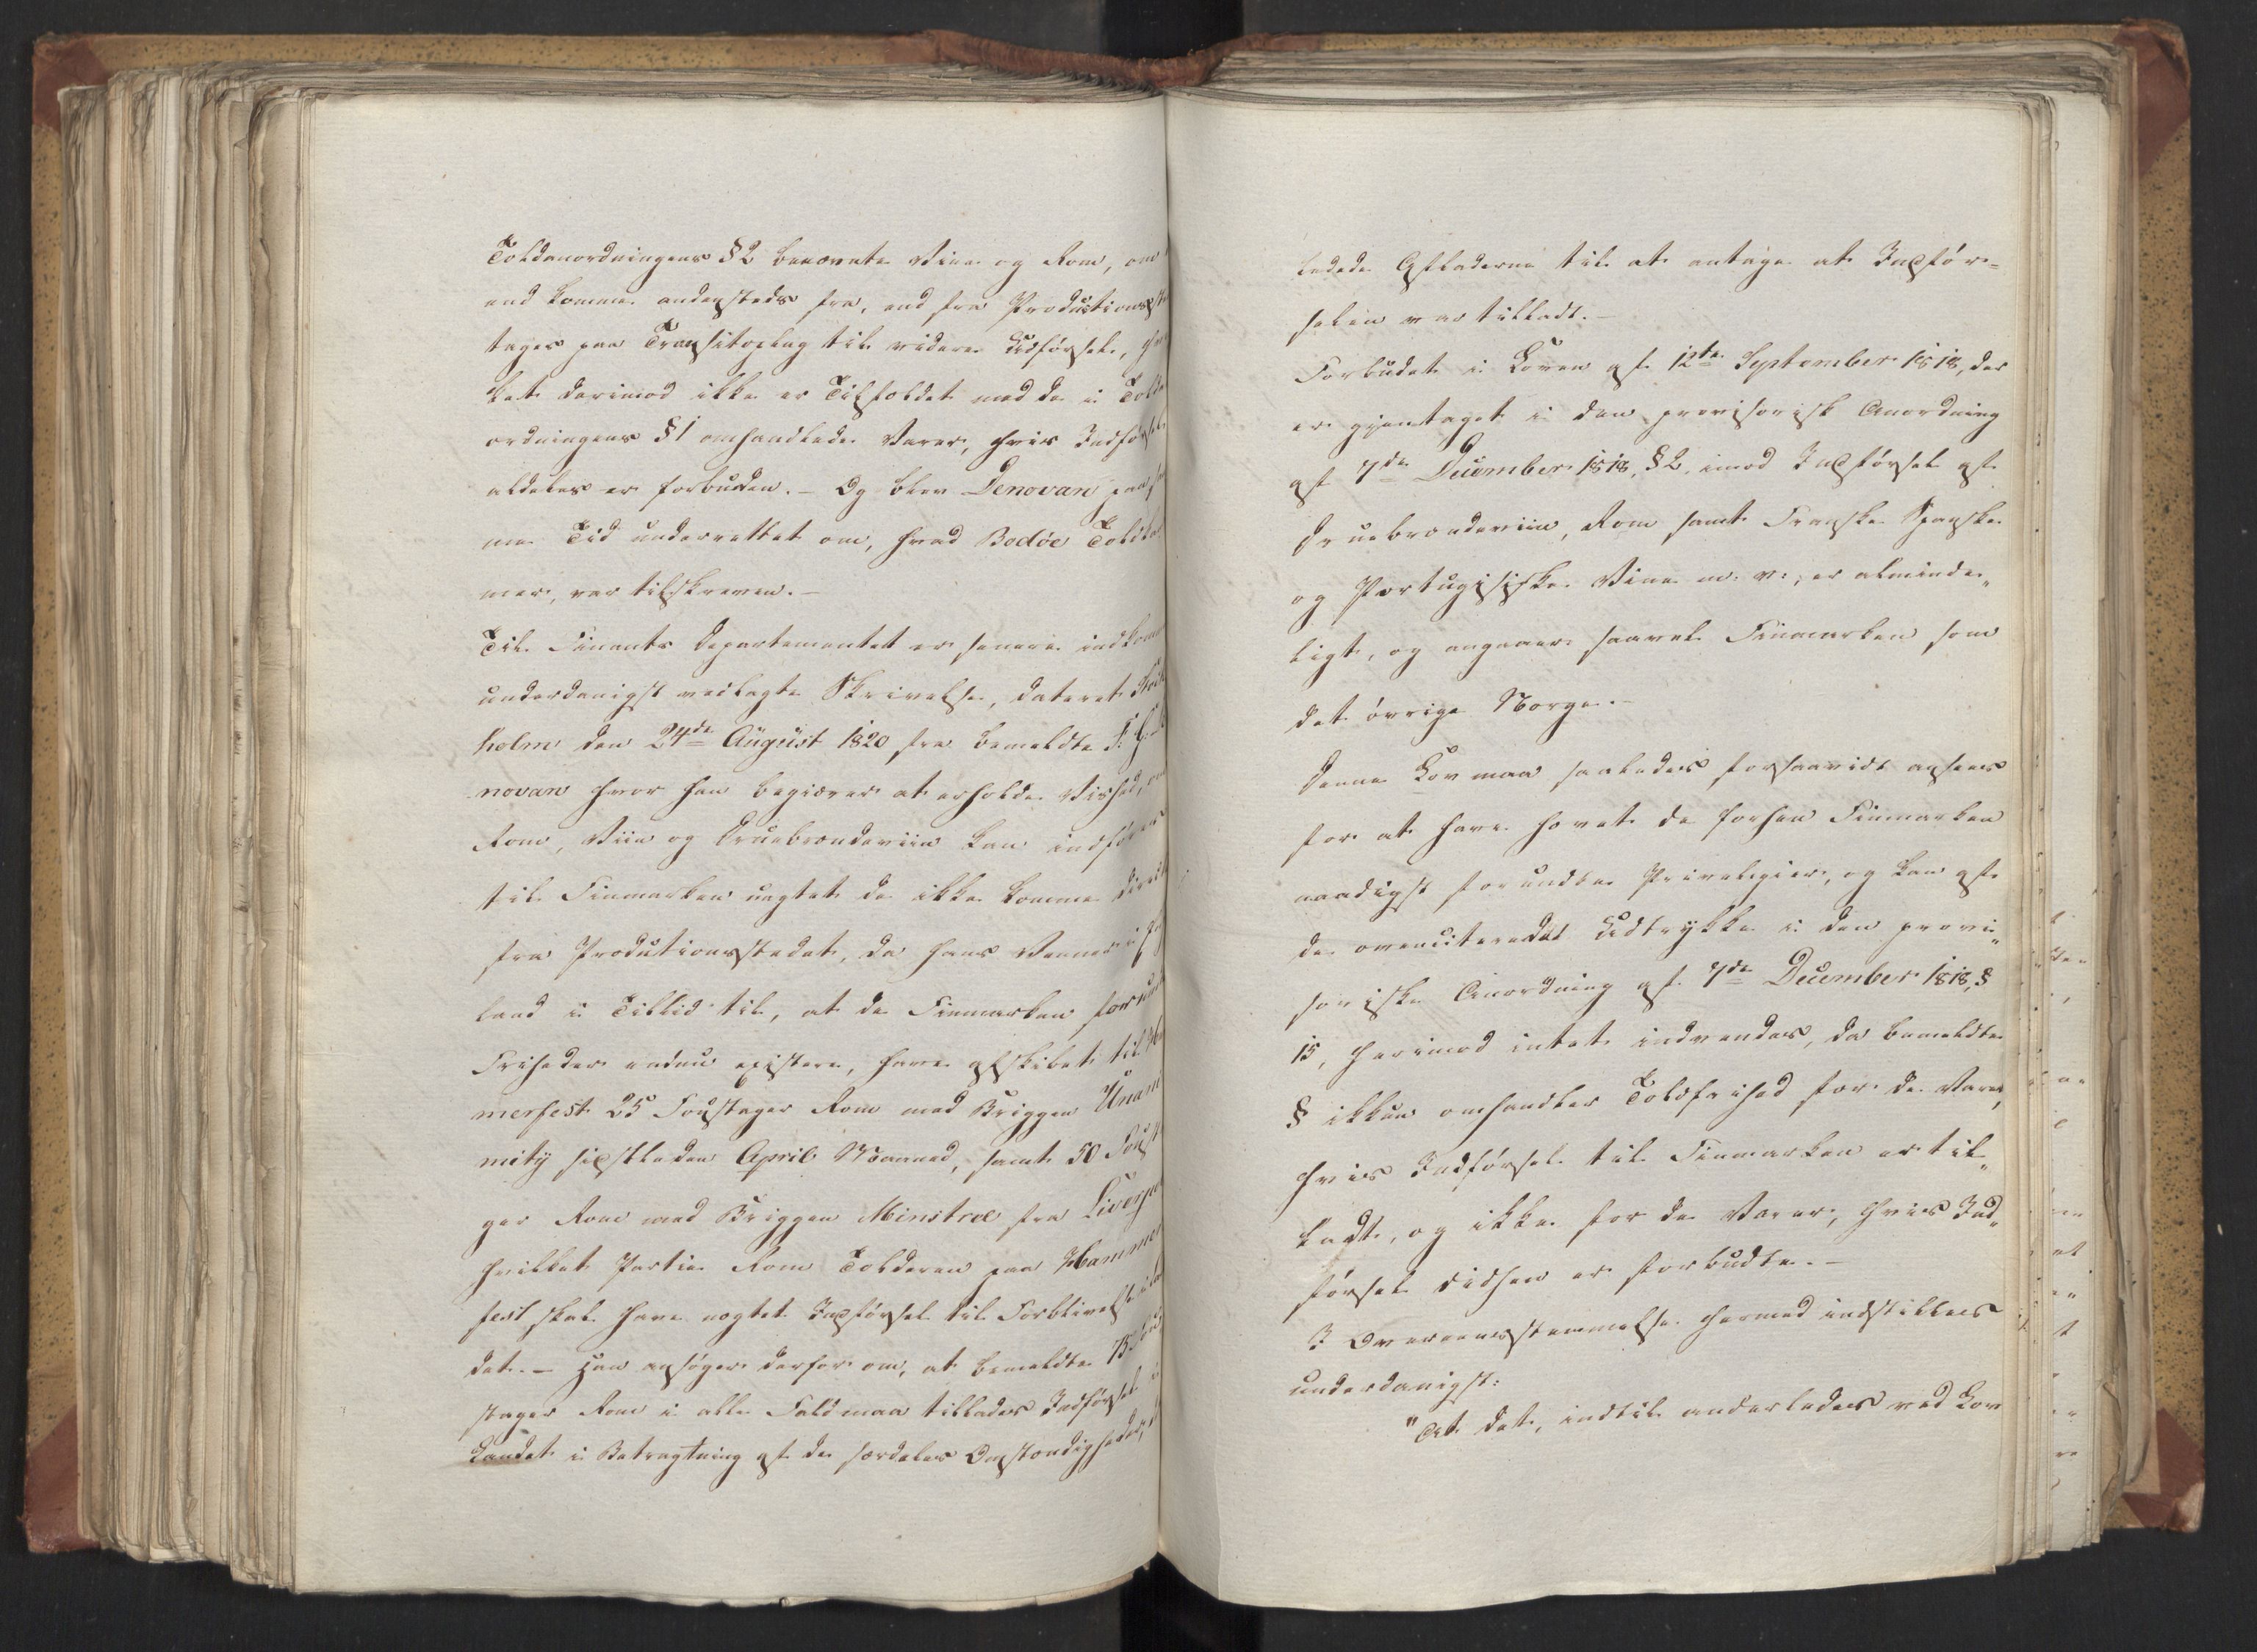 Toldanordningens §2 benævnte Viine og Rom, om
end komme andensteds fra, end fra Productionsste
tages paa Transitoplag til videre Udførsel, hvil
ket derimod ikke er Tilfældet med de i Told
ordningens §1 omhandlede Varer, hvis Indførsel
aldeles er forbuden. – Og blev Denovan paa sam
me Tid underrettet om, hvad Bodøe Toldka
mer, var tilskreven. –
Til Finants Departementet er senere indkom
underdanigst vedlagte Skrivelse, dateret Stock
holm den 24de August 1820 fra bemeldte
novan hvor han begierer at erholde Vished, om
Rom, Viin og Druebrændeviin kan indføres
til Finmarken uagtet de ikke komme direct
fra Productionsstedet, da hans Venner i
land i Tillid til, at de Finmarken forundte
Friheder endnu existere, have afskibet til Ham
merfest 25 Foustager Rom med Briggen Unani
mity sidstleden April Maaned, samt 50 Fousta
ger Rom med Briggen Minstrel fra Liverpo
hvilket Partie Rom Tolderen paa Hammer
fest skal have nægtet Indførsel til Forblivelse i Lan
det. – Han ansøger derfor om, at bemeldte 75 Fou
stager Rom i alle Fald maa tillades Indførsel i
Landet i Betragtning af de særdeles Omstændigheder,
ledede Afladerne til at antage at Indfør-
selen var tilladt. –
Forbudet i Loven af 12te September 1818, der
er gjentaget i den provisorisk Anordning
af 7de December 1818, §2, imod Indførsel af
Druebrændeviin, Rom samt Franske Spanske
og Portugisiske Vine m: v:, er alminde„
ligt, og angaaer saavel Finmarken som
det øvrige Norge. –
Denne Lov maa saaledes forsaavidt ansees
for at have hævet de forhen Finmarken
naadigst forundte Privilegier, og kan af
de ovenciterede Udtrykke i den provi„
soriske Anordning af 7de December 1818, §
15, herimod intet indvendes, da bemeldte
§ ikkun omhandler Toldfrihed for de Varer,
hvis Indførsel til Finmarken er til„
ladt, og ikke for de Varer, hvis Ind„
førsel didhen er forbudte. –
I Overeensstemmelse hermed indstilles
underdanigst:
"At det, indtil anderledes ved Lov